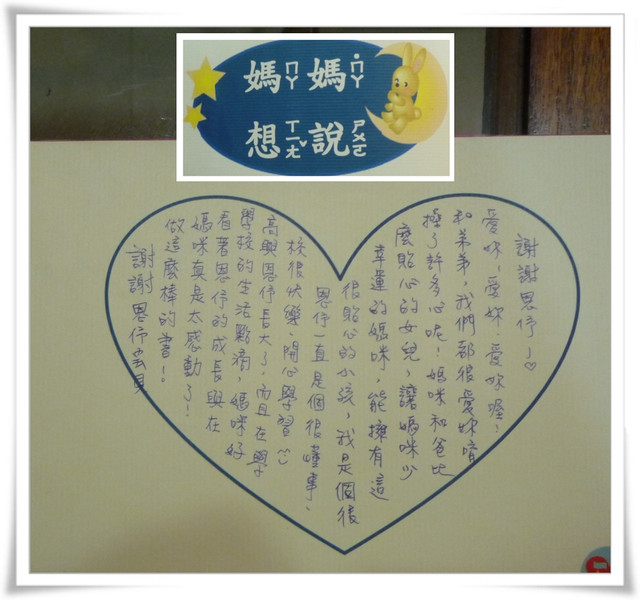 媽ㄇㄚ媽˙ㄇㄚ
想ㄒㄧㄤˇ說ㄕㄨㄛ
謝謝恩伃寶貝
做這麼棒的書!!
媽咪真是太感動了!
看著恩伃的成長與在
學校的生活點滴,媽咪好
高興恩伃長大了!而且在學
校很快樂、開心學習
恩伃一直是個很懂事、
很貼心的小孩,我是個很
幸運的媽咪,能擁有這
麼貼心的女兒,讓媽咪少
操了許多心呢!媽咪和爸比
和弟弟,我們都很愛妳唷
愛妳!愛妳!愛妳喔!
謝謝恩伃!♡